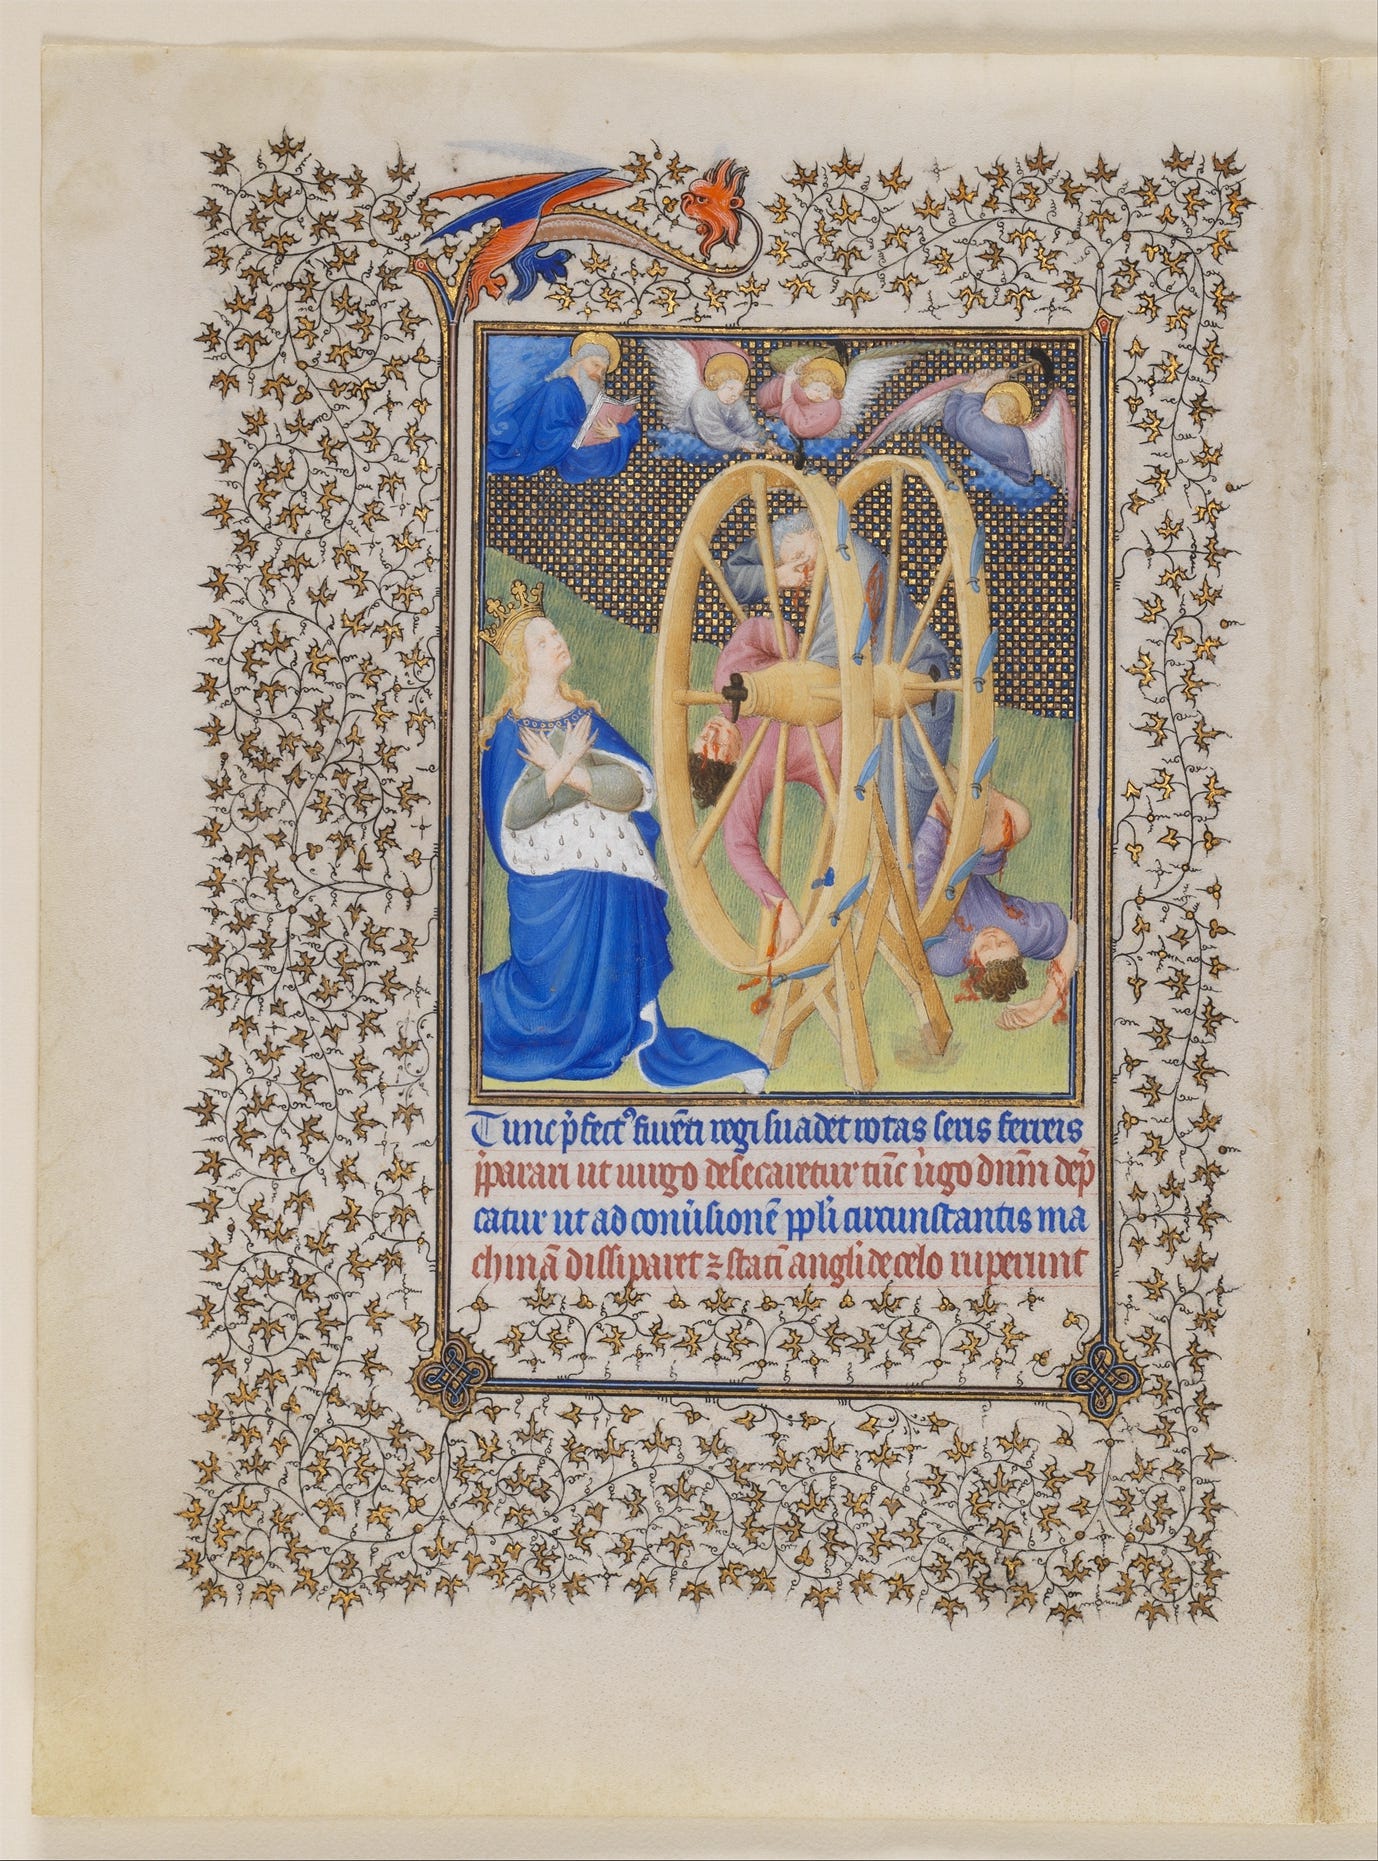 Tunc p̄fect᷒ fiuēti regi suadet rotas seris ferreis
p̄parari ut uirgo desecaretur tūc u̇go dn̄m dep̄
catur ut ad conu̇sionē ppl̓i circunstantis ma
chinā dissiparet ⁊ statī angl̓i de celo ruperunt